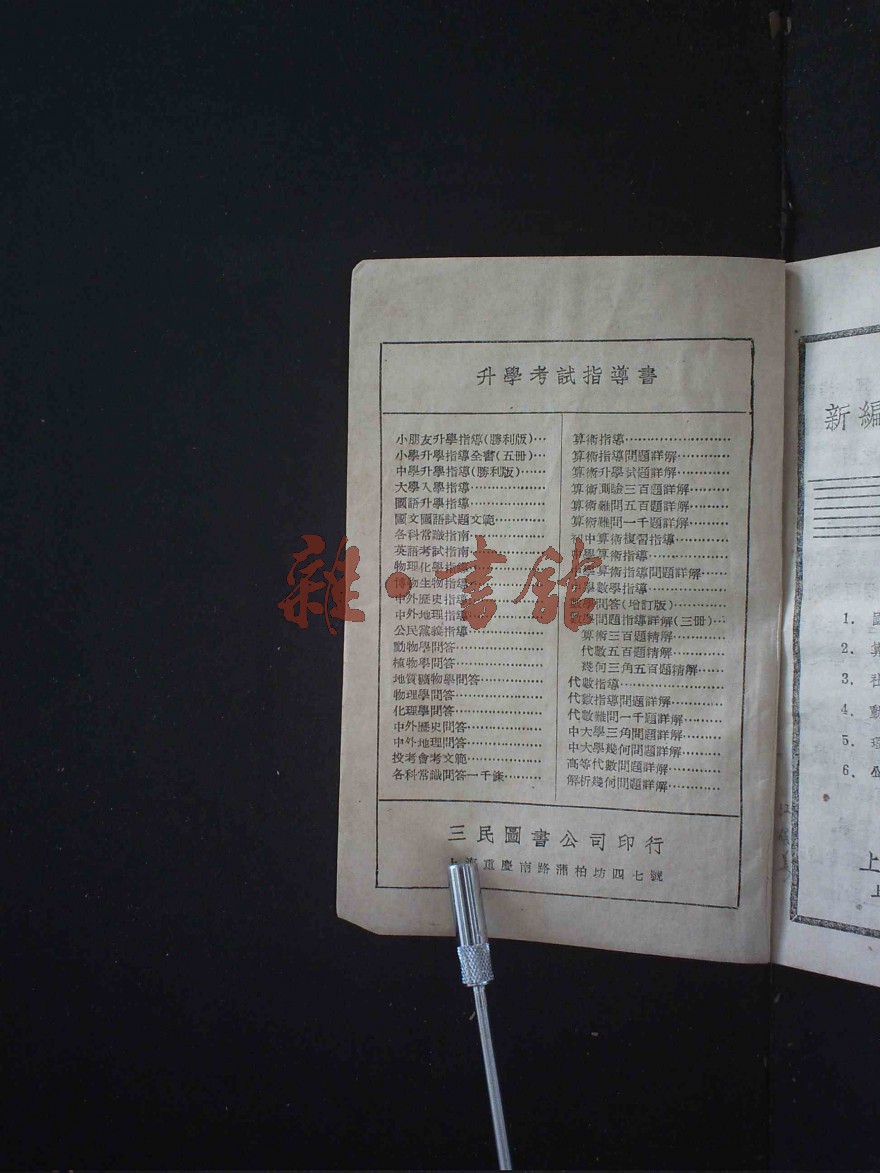 升學考試指導書
小朋友升學指導(勝利版)…
小學升學指導全書(五冊)…
中學升學指導(勝利版)…
大學入學指導…
國語升學指導…
國文國語試題文範…
各科常識指南…
英語考試指南…
物理化學指導…
博物生物指導…
中外歷史指導…
中外地理指導…
公民黨義指導…
動物學問答…
植物學問答…
地質礦物學問答…
物理學問答…
化理學問答…
中外歷史問答…
中外地理問答…
投考會考文範…
各科常識問答一千條…
算術指導…
算術指導問題詳解…
算術升學試題詳解…
算術測驗三百題詳解…
算術難問五百題詳解…
算術難問一千題詳解…
初中算術復習指導…
中學算術指導…
中學算術指導問題詳解…
數學指導…
數學問答(增訂版)…
數學問題指導詳解(三冊)…
算術三百題精解…
代數五百題精解…
幾何三角五百題精解…
代數指導…
代數指導問題詳解…
代數難問一千題詳解…
中大學三角問題詳解…
中大學幾何問題詳解…
高等代數問題詳解…
解析幾何問題詳解…
三民圖書公司印行
上海重慶南路蒲柏坊四七號
雜·書館
新編
1.
2.
3. 社
4. 動
5.
6. 公
上
上